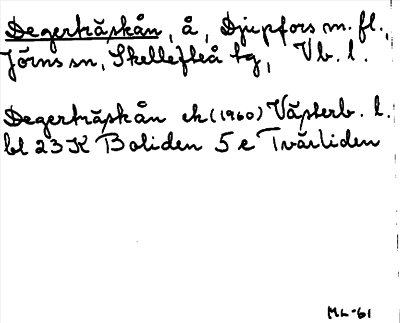 Degerträskån, å, Djupfors m. fl.,
Jörns sn, Skellefteå tg, Vb. l.
Degerträskån ek (1960) Västerb. l.
bl 23 K Boliden 5 e Tvärliden
ML-61